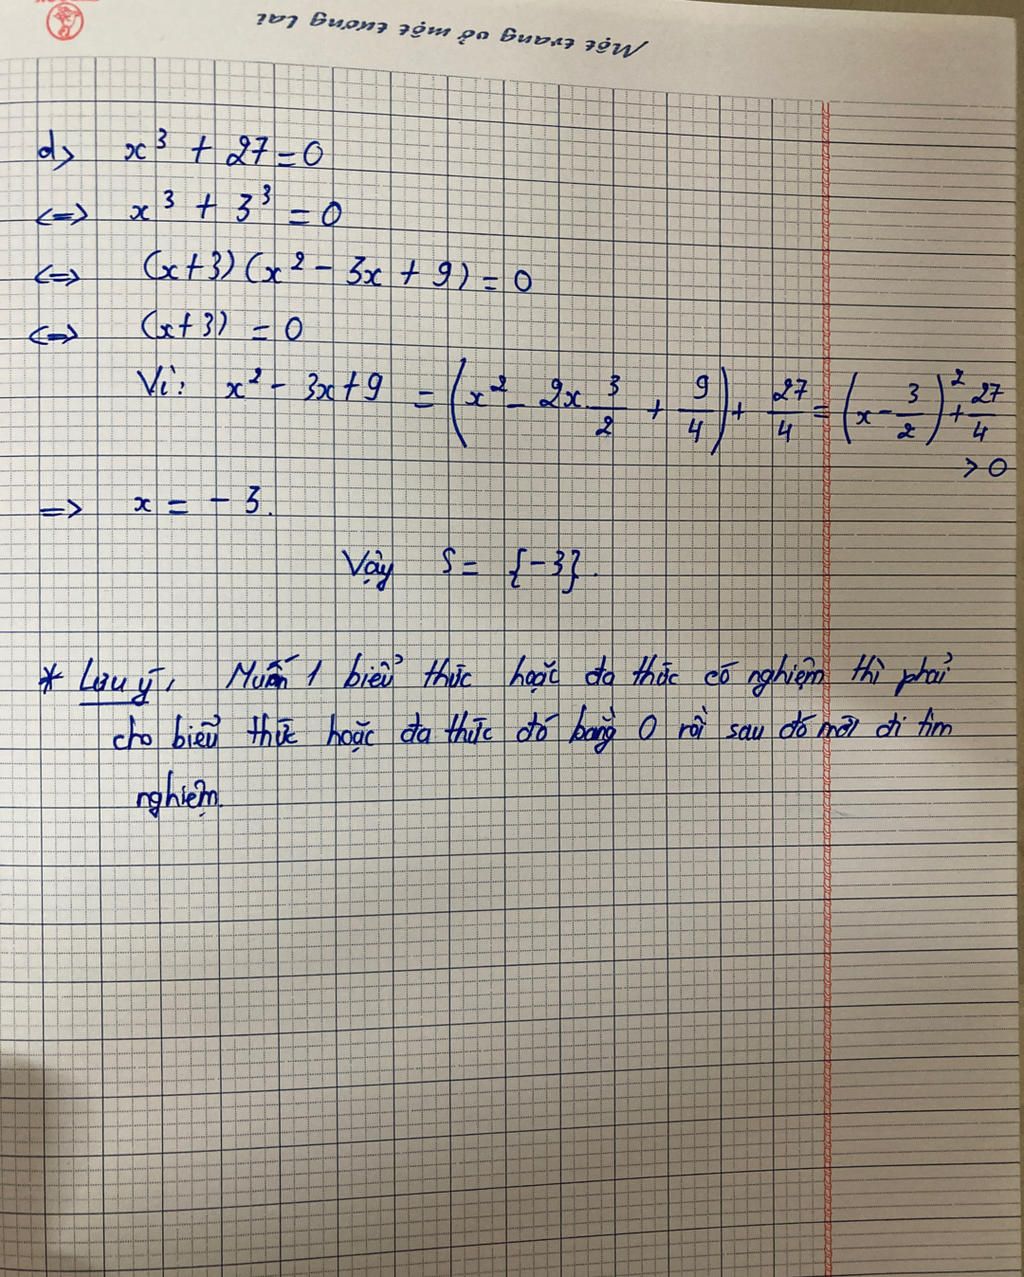 Một trang vở một tương lai
d> x³ + 27 = 0
<=> x³ + 3³ = 0
<=> (x+3)(x² - 3x + 9) = 0
<=> (x+3) = 0
Vì: x² - 3x + 9 = (x² - 2x.3/2 + 9/4) + 27/4 = (x - 3/2)² + 27/4
> 0
=> x = -3.
Vậy S = {-3}.
* Lưu ý: Muốn 1 biểu thức hoặc đa thức có nghiệm thì phải
cho biểu thức hoặc đa thức đó bằng 0 rồi sau đó mới đi tìm
nghiệm.